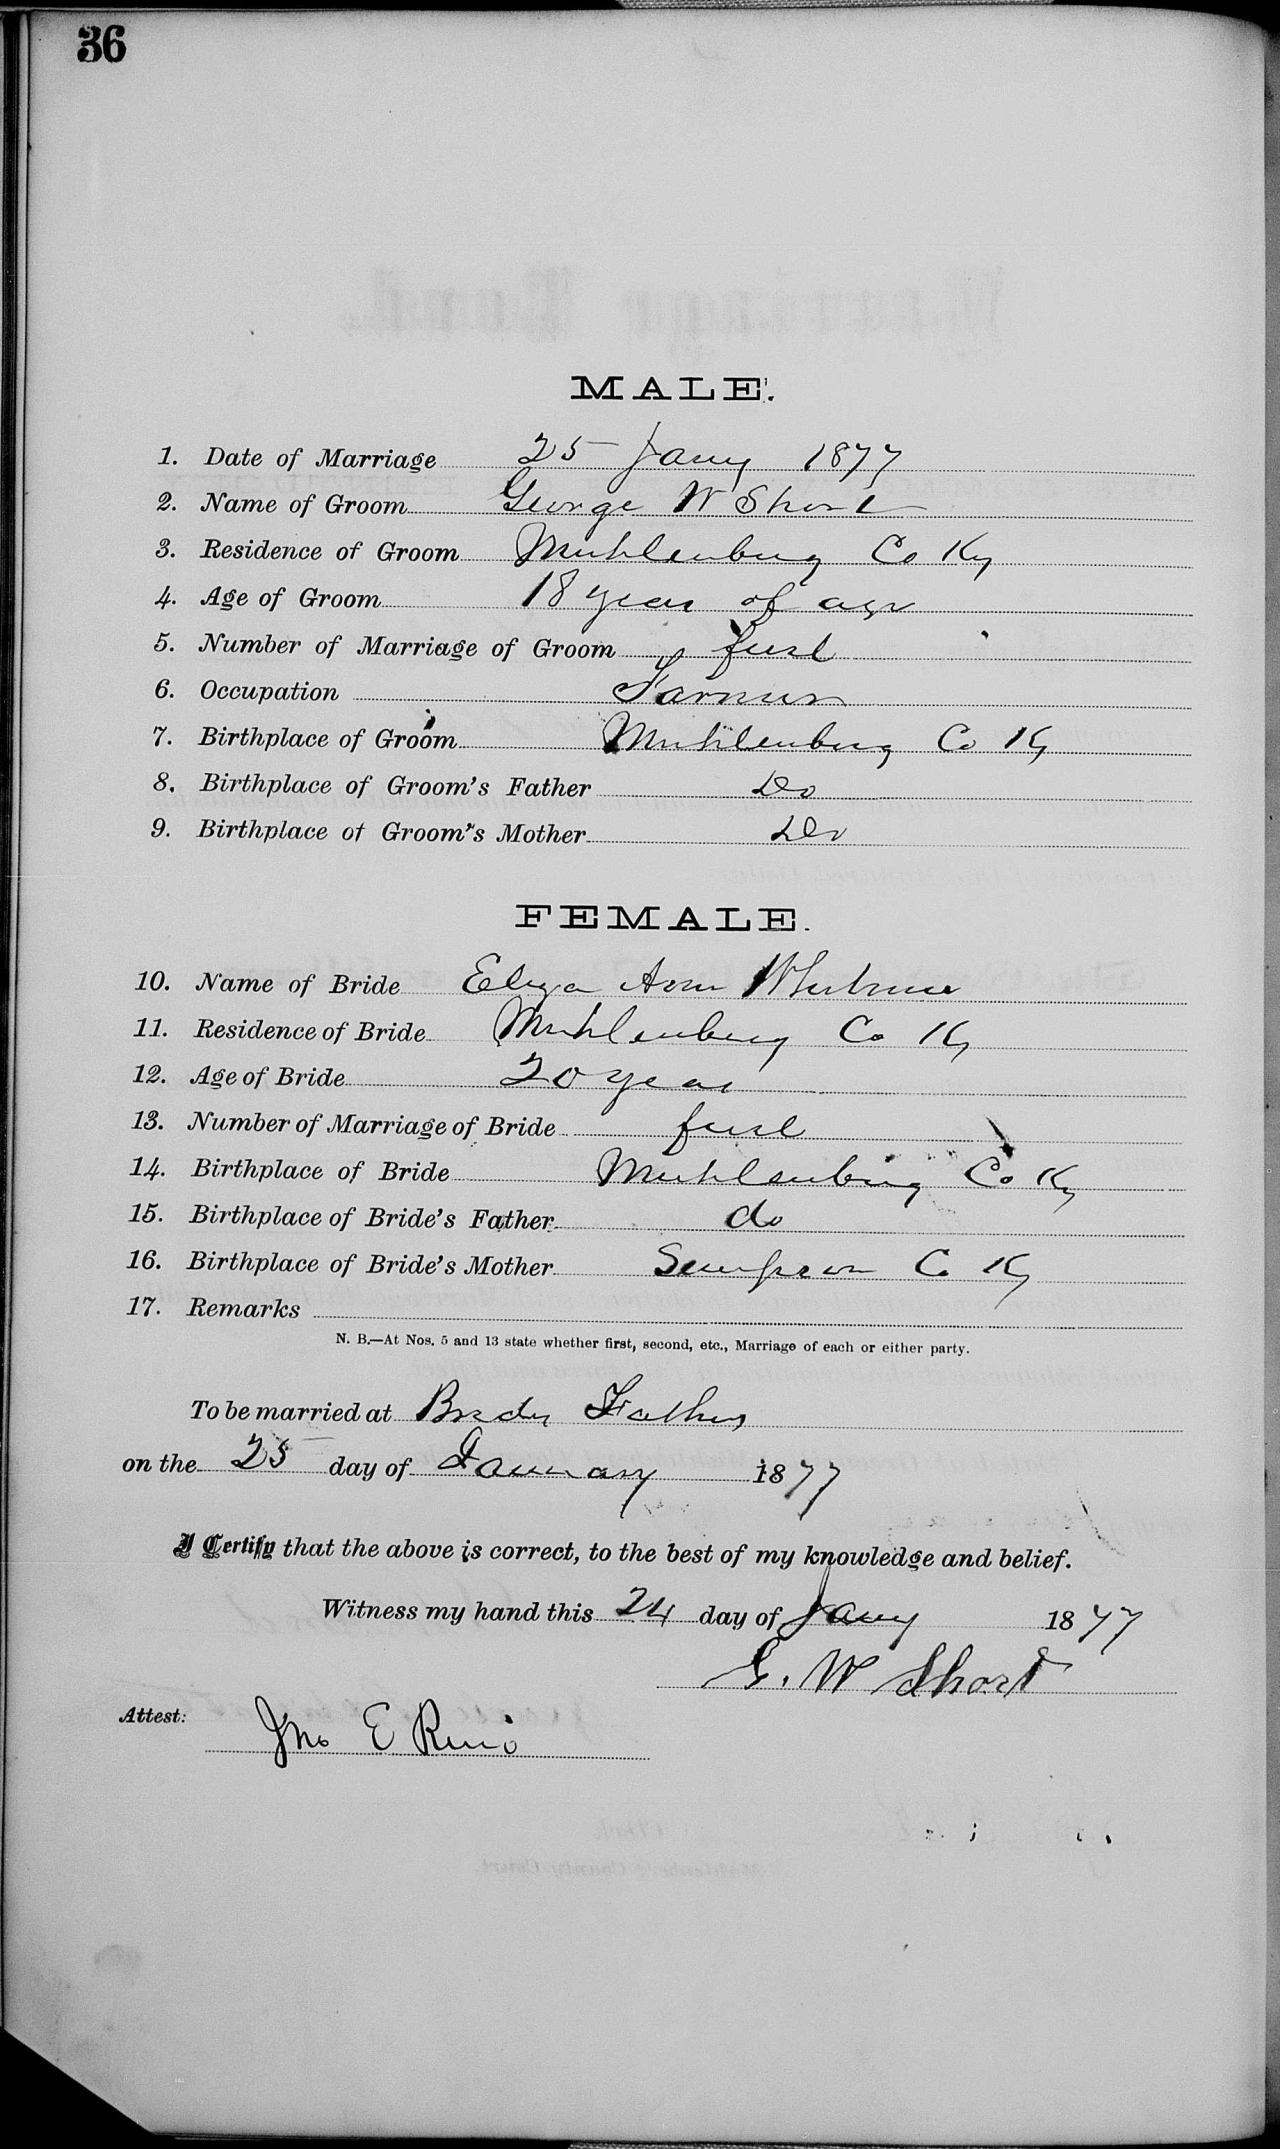 36
MALE.
1. Date of Marriage 25 Jany 1877
2. Name of Groom George W Short
3. Residence of Groom Muhlenburg Co Ky
4. Age of Groom 18 years of age
5. Number of Marriage of Groom first
6. Occupation Farmer
7. Birthplace of Groom Muhlenburg Co Ky
8. Birthplace of Groom's Father Do
9. Birthplace of Groom's Mother Do
FEMALE.
10. Name of Bride Eliza Ann
11. Residence of Bride Muhlenburg Co Ky
12. Age of Bride 20 years
13. Number of Marriage of Bride first
14. Birthplace of Bride Muhlenburg Co Ky
15. Birthplace of Bride's Father do
16. Birthplace of Bride's Mother Simpson Co Ky
17. Remarks
N. B.—At Nos. 5 and 13 state whether first, second, etc., Marriage of each or either party.
To be married at Brides Fathers
on the 25 day of January 1877
I Certify that the above is correct, to the best of my knowledge and belief.
Witness my hand this 24 day of Jany 1877
G. W Short
Attest: Jno E Reno